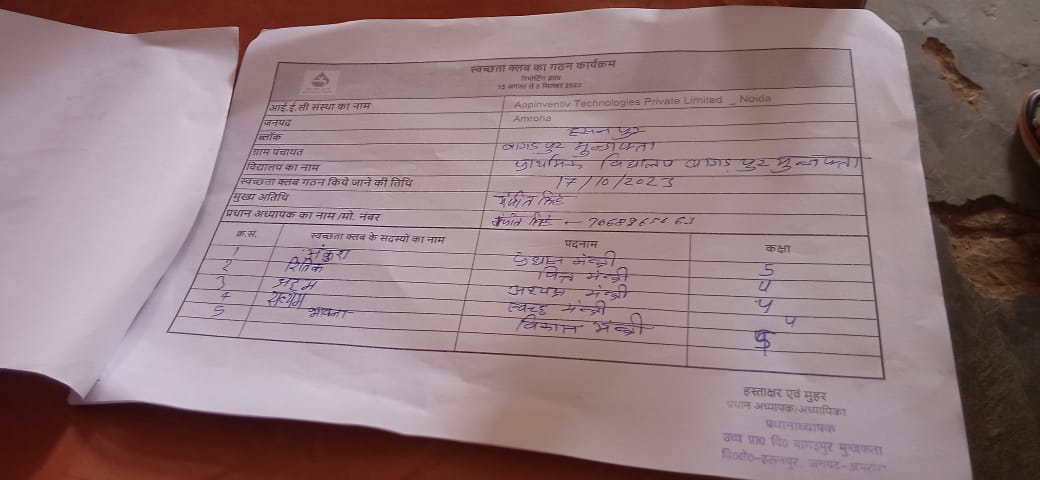 स्वच्छता क्लब का गठन कार्यक्रम
रिपोर्टिंग प्रपत्र
आई.ई.सी संस्था का नाम Appinventiv Technologies Private Limited _ Noida
जनपद Amroha
ब्लॉक हसनपुर
ग्राम पंचायत बागड़पुर मुन्जफता
विद्यालय का नाम प्राथमिक विद्यालय बागड़पुर मुन्जफता
स्वच्छता क्लब गठन किये जाने की तिथि 17/10/2023
मुख्य अतिथि
प्रधान अध्यापक का नाम /मो. नंबर
क्र.स. स्वच्छता क्लब के सदस्यों का नाम पदनाम कक्षा
1 अंकुश प्रधान मंत्री 5
2 रितिक वित्त मंत्री 4
3 मंत्री 4
4 संगम स्वच्छ मंत्री 4
5 भावना विकास मंत्री
हस्ताक्षर एवं मुहर
प्रधान अध्यापक/अध्यापिका
प्रधानाध्यापक
उच्च प्रा0 वि0 बागड़पुर मुन्जफता
वि0क्षे0-हसनपुर, जनपद-अमरोहा